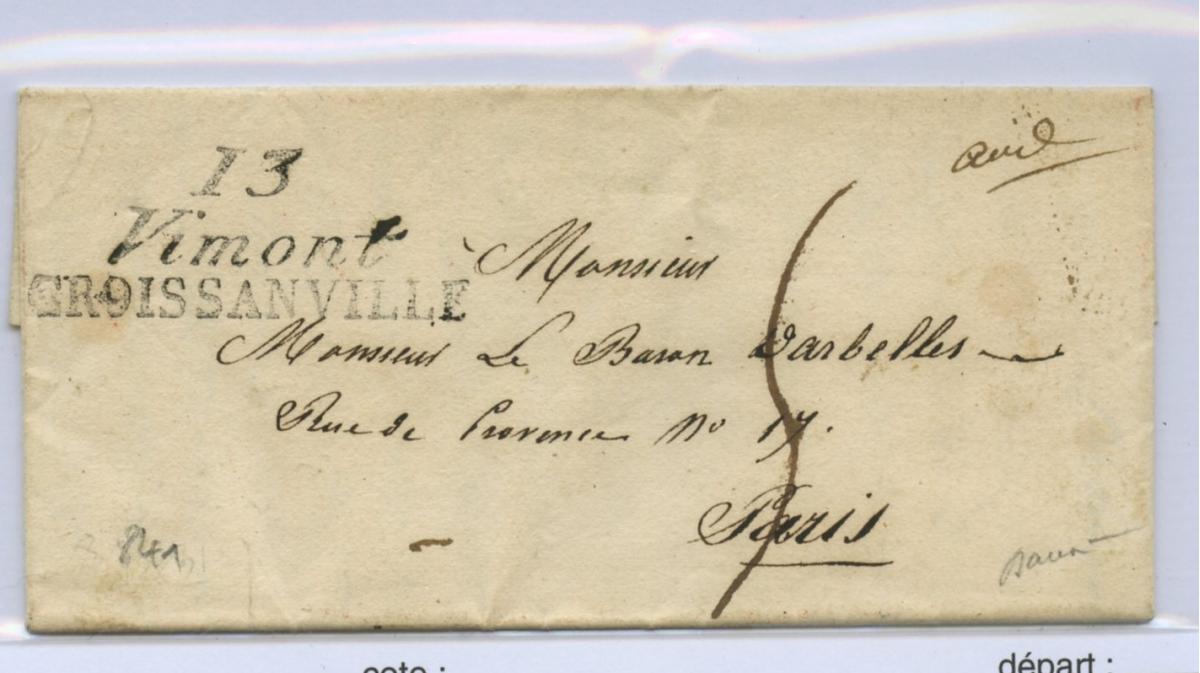 13
Vimont
CROISSANVILLE
avril
à Monsieur
Monsieur Le Baron Darbelles
Rue de Provence No 17.
Paris
841
cote :
départ :